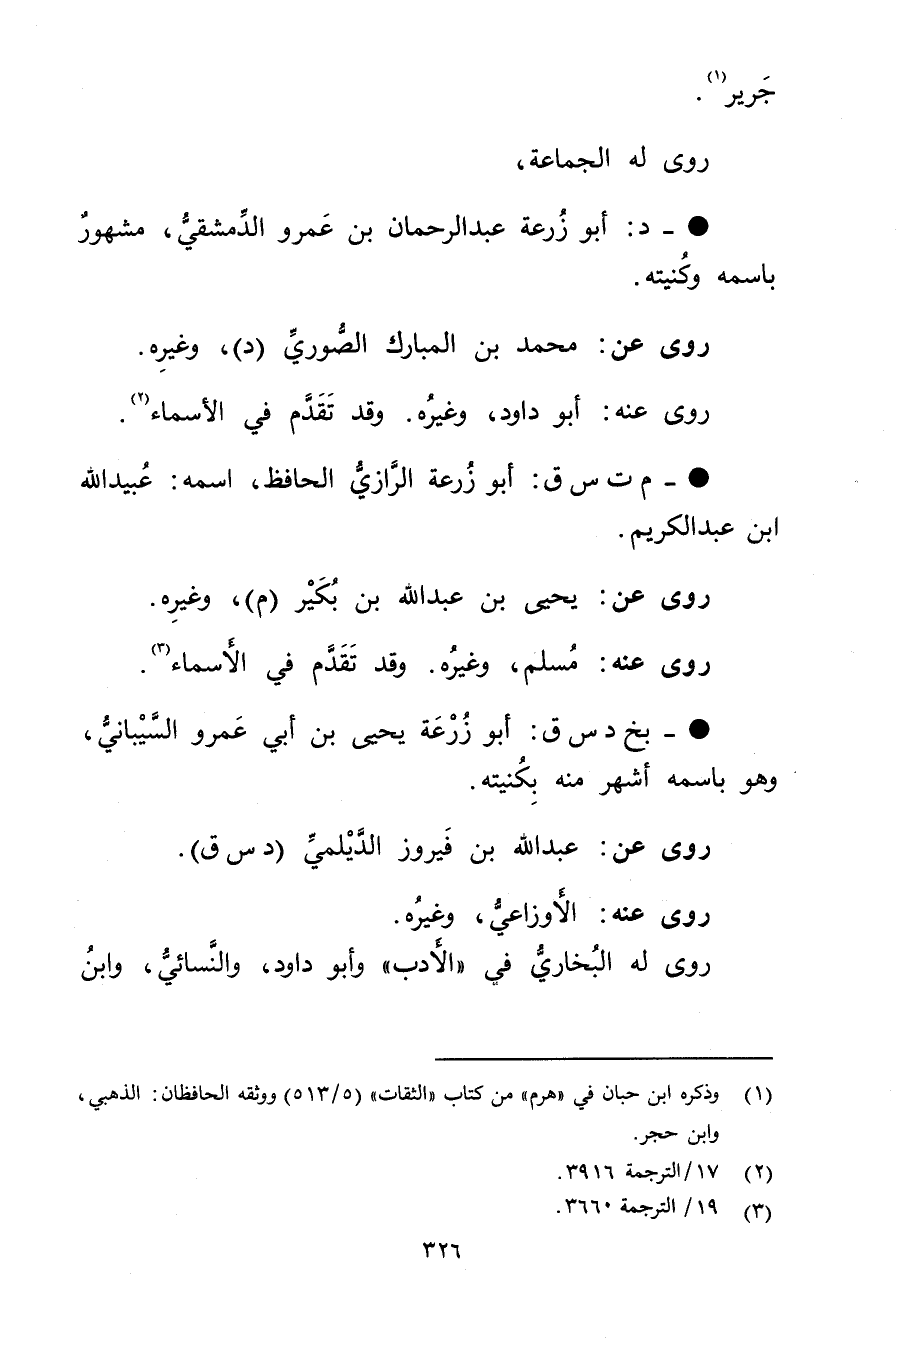 جَرير(١).
روى له الجماعة،
● ـ د: أبو زُرعة عبدالرحمان بن عَمرو الدِّمشقيُّ، مشهورٌ
باسمه وكُنيته.
روى عن: محمد بن المبارك الصُّوريِّ (د)، وغيرِه.
روى عنه: أبو داود، وغيرُه. وقد تَقَدَّم في الأسماء(٢).
● ـ م ت س ق: أبو زُرعة الرَّازيُّ الحافظ، اسمه: عُبيدالله
ابن عبدالكريم.
روى عن: يحيى بن عبدالله بن بُكَيْر (م)، وغيرِه.
روى عنه: مُسلم، وغيرُه. وقد تَقَدَّم في الأَسماء(٣).
● ـ بخ د س ق: أبو زُرْعَة يحيى بن أبي عَمرو السَّيْبانيُّ،
وهو باسمه أشهر منه بِكُنيته.
روى عن: عبدالله بن فَيروز الدَّيْلميِّ (د س ق).
روى عنه: الأَوزاعيُّ، وغيرُه.
روى له البُخاريُّ في «الأَدب» وأبو داود، والنَّسائيُّ، وابنُ
(١) وذكره ابن حبان في «هرم» من كتاب «الثقات» (٥١٣/٥) ووثقه الحافظان: الذهبي،
وابن حجر.
(٢) ١٧/الترجمة ٣٩١٦.
(٣) ١٩/ الترجمة ٣٦٦٠.
٣٢٦